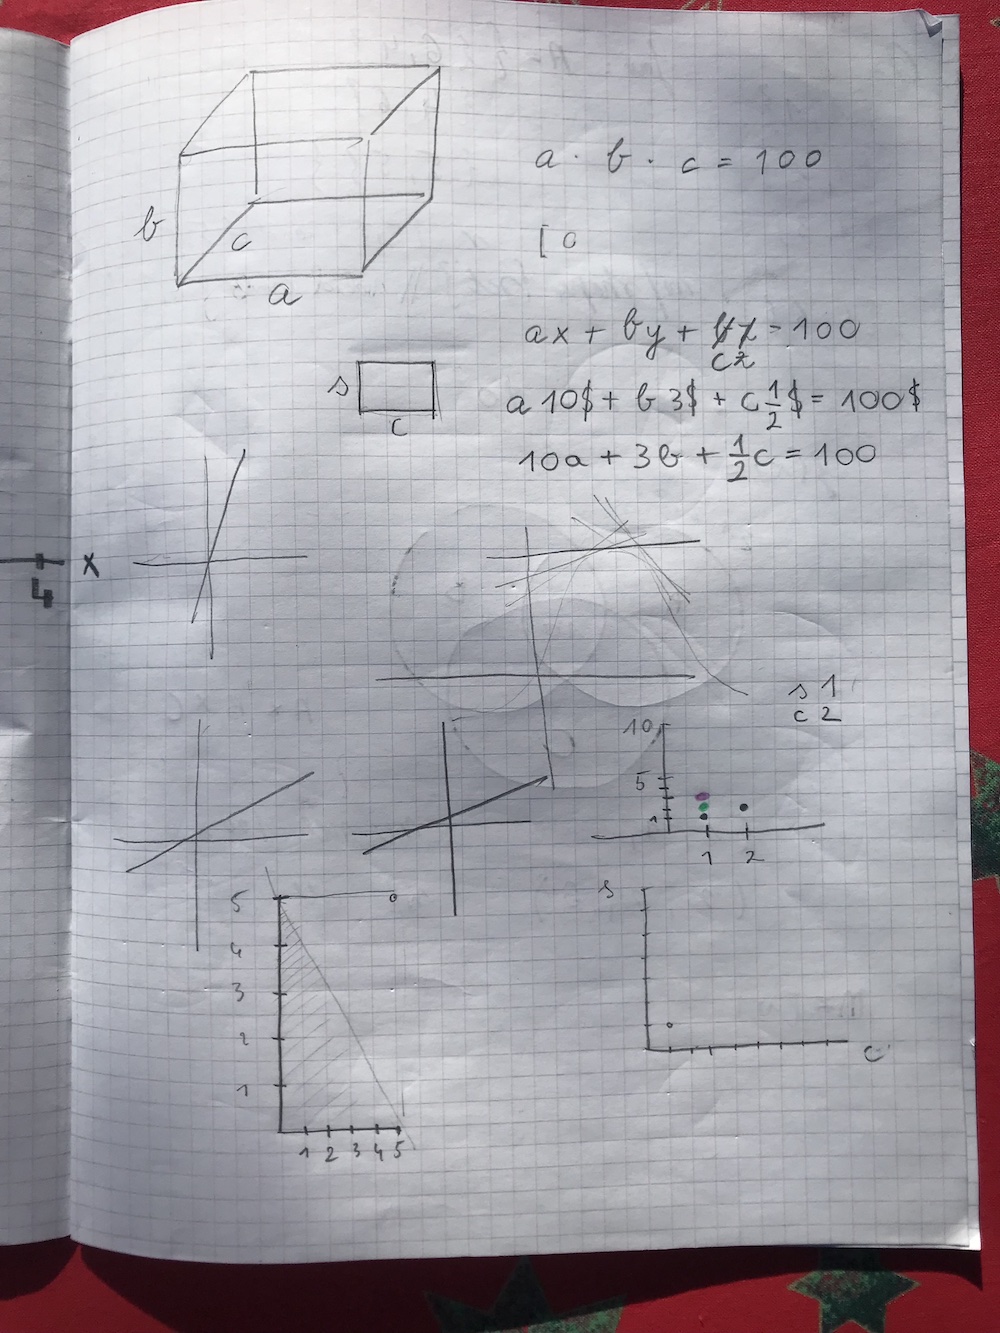 a · b · c = 100
b
c
a
[ 0
ax + by + cz = 100
s
c
a 10$ + b 3$ + c 1/2 $ = 100$
10a + 3b + 1/2 c = 100
x
4
s 1
c 2
10
5
1
1 2
5
4
3
2
1
1 2 3 4 5
s
c